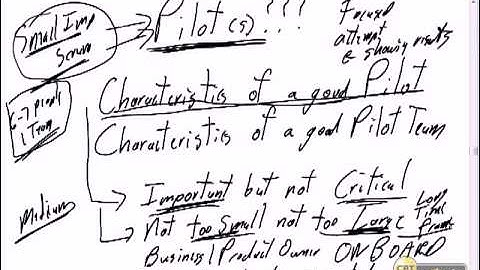 Small Imp
Scrum
Pilot(s)???
Focused
attempt
@ showing results
Characteristics of a good Pilot
Characteristics of a good Pilot Team
6-7 people
1 Team
Medium
Important but not Critical
Not too Small not too Large
Long
Time
Business/Product Owner ON BOARD
CBT